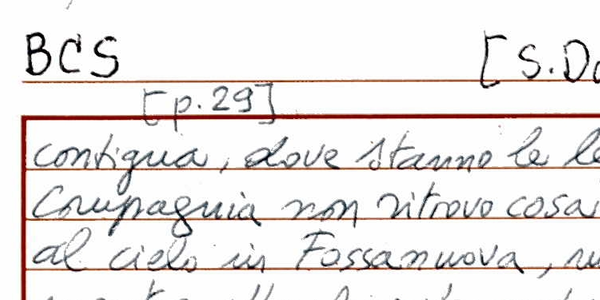 BCS [S. Do
[p. 29]
contigua, dove stanno le le
Compagnia non ritrovo cosa
al cielo in Fossanuova, nu